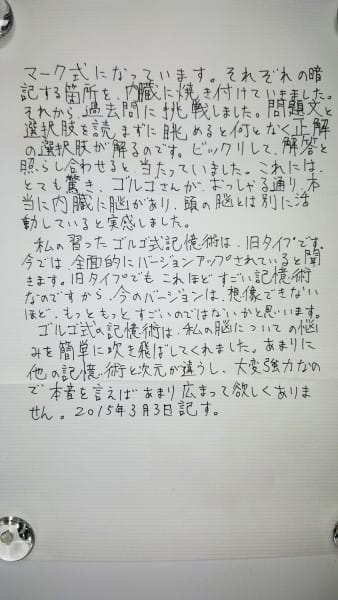 マーク式になっています。それぞれの暗
記する箇所を、内臓に焼き付けていきました。
それから、過去問に挑戦しました。問題文と
選択肢を読まずに眺めると何となく正解
の選択肢が解るのです。ビックリして、解答と
照らし合わせると、当たっていました。これには、
とても驚き、ゴルゴさんがおっしゃる通り、本
当に内臓に脳があり、頭の脳とは別に活
動していると実感しました。
私の習ったゴルゴ式記憶術は、旧タイプです。
今では、全面的にバージョンアップされていると聞
きます。旧タイプでも、これほどすごい記憶術
なのですから、今のバージョンは、想像できない
ほど、もっともっとすごいのではないかと思います。
ゴルゴ式の記憶術は、私の脳についての悩
みを簡単に吹き飛ばしてくれました。あまりに
他の記憶術と次元が違うし、大変強力なの
で本音を言えばあまり広まって欲しくありま
せん。2015年3月3日記す。